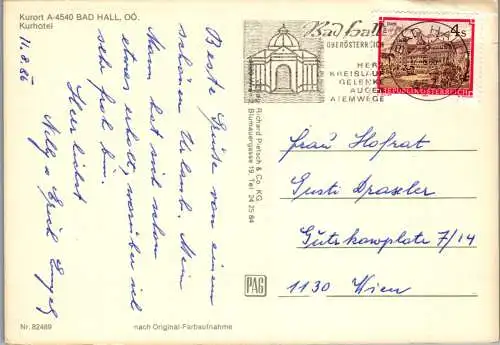 Kurort A-4540 BAD HALL, OÖ.
Kurhotel
11.8.86
Beste Grüße von einem
schönen Urlaub. Mein
Mann hat sich schon
etwas erholt, worüber ich
sehr froh bin.
Herzlichst
Nelly u Erich Engel
Nr. 82489
nach Original-Farbaufnahme
Richard Pietsch & Co. KG
Blumauergasse 19, Tel. 24 25 64
PAG
Bad Hall
OBERÖSTERREICH
HERZ
KREISLAUF
GELENKE
AUGEN
ATEMWEGE
4 S
REPUBLIK ÖSTERREICH
Frau Hofrat
Gusti Draxler
Gutzkowplatz 7/14
1130 Wien